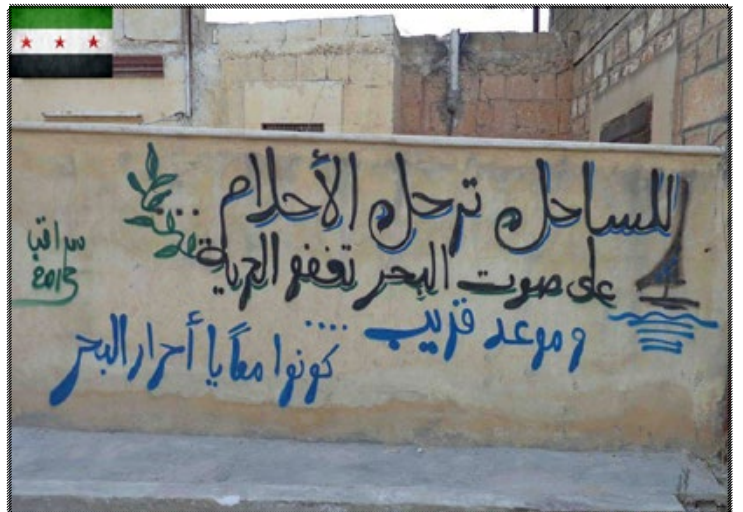 للساحل ترحل الأحلام ..
على صوت البحر تغفو الحرية
وموعد قريب ....
كونوا معاً يا أحرار البحر
سراقب
2013